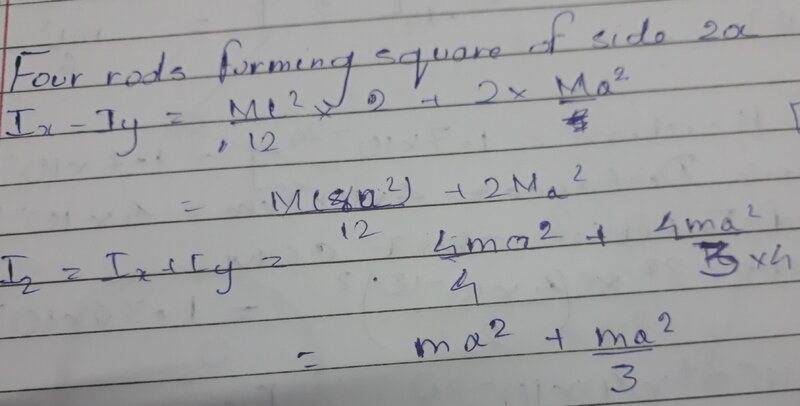 Four rods forming square of side 2a
Ix - Iy = Ml²/12 × 2 + 2 × Ma²
= M(8a²)/12 + 2Ma²
Iz = Ix + Iy = 4ma²/4 + 4ma²/3×4
= ma² + ma²/3